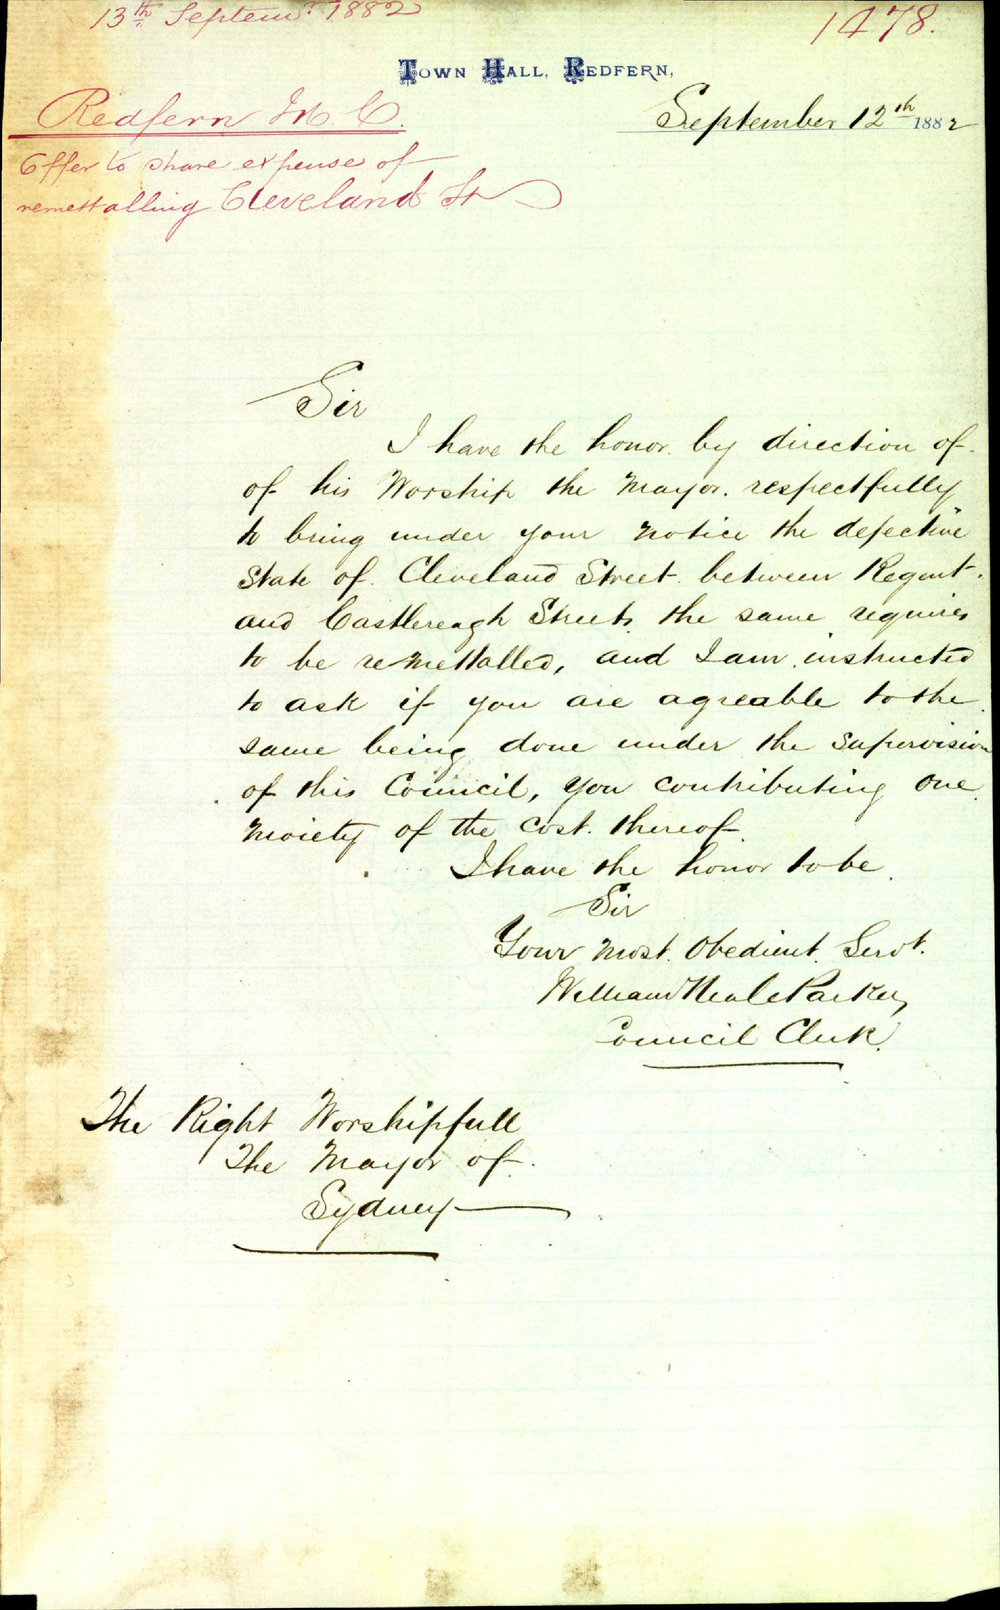 13th Septemr. 1882
1478.
TOWN HALL, REDFERN,
Redfern M. C.
September 12th 1882
Offer to share expense of
remettalling Cleveland St
Sir
I have the honor by direction of
of his Worship the Mayor. respectfully
to bring under your notice the defective
State of Cleveland Street between Regent
and Castlereagh Streets, the same requires
to be remettalled, and I am instructed
to ask if you are agreable to the
same being done under the supervision
of this Council, you contributing one
moiety of the cost thereof.
I have the honor to be
Sir
Your most Obedient Servt.
William Neale Parker,
Council Clerk.
The Right Worshipfull
The Mayor of
Sydney